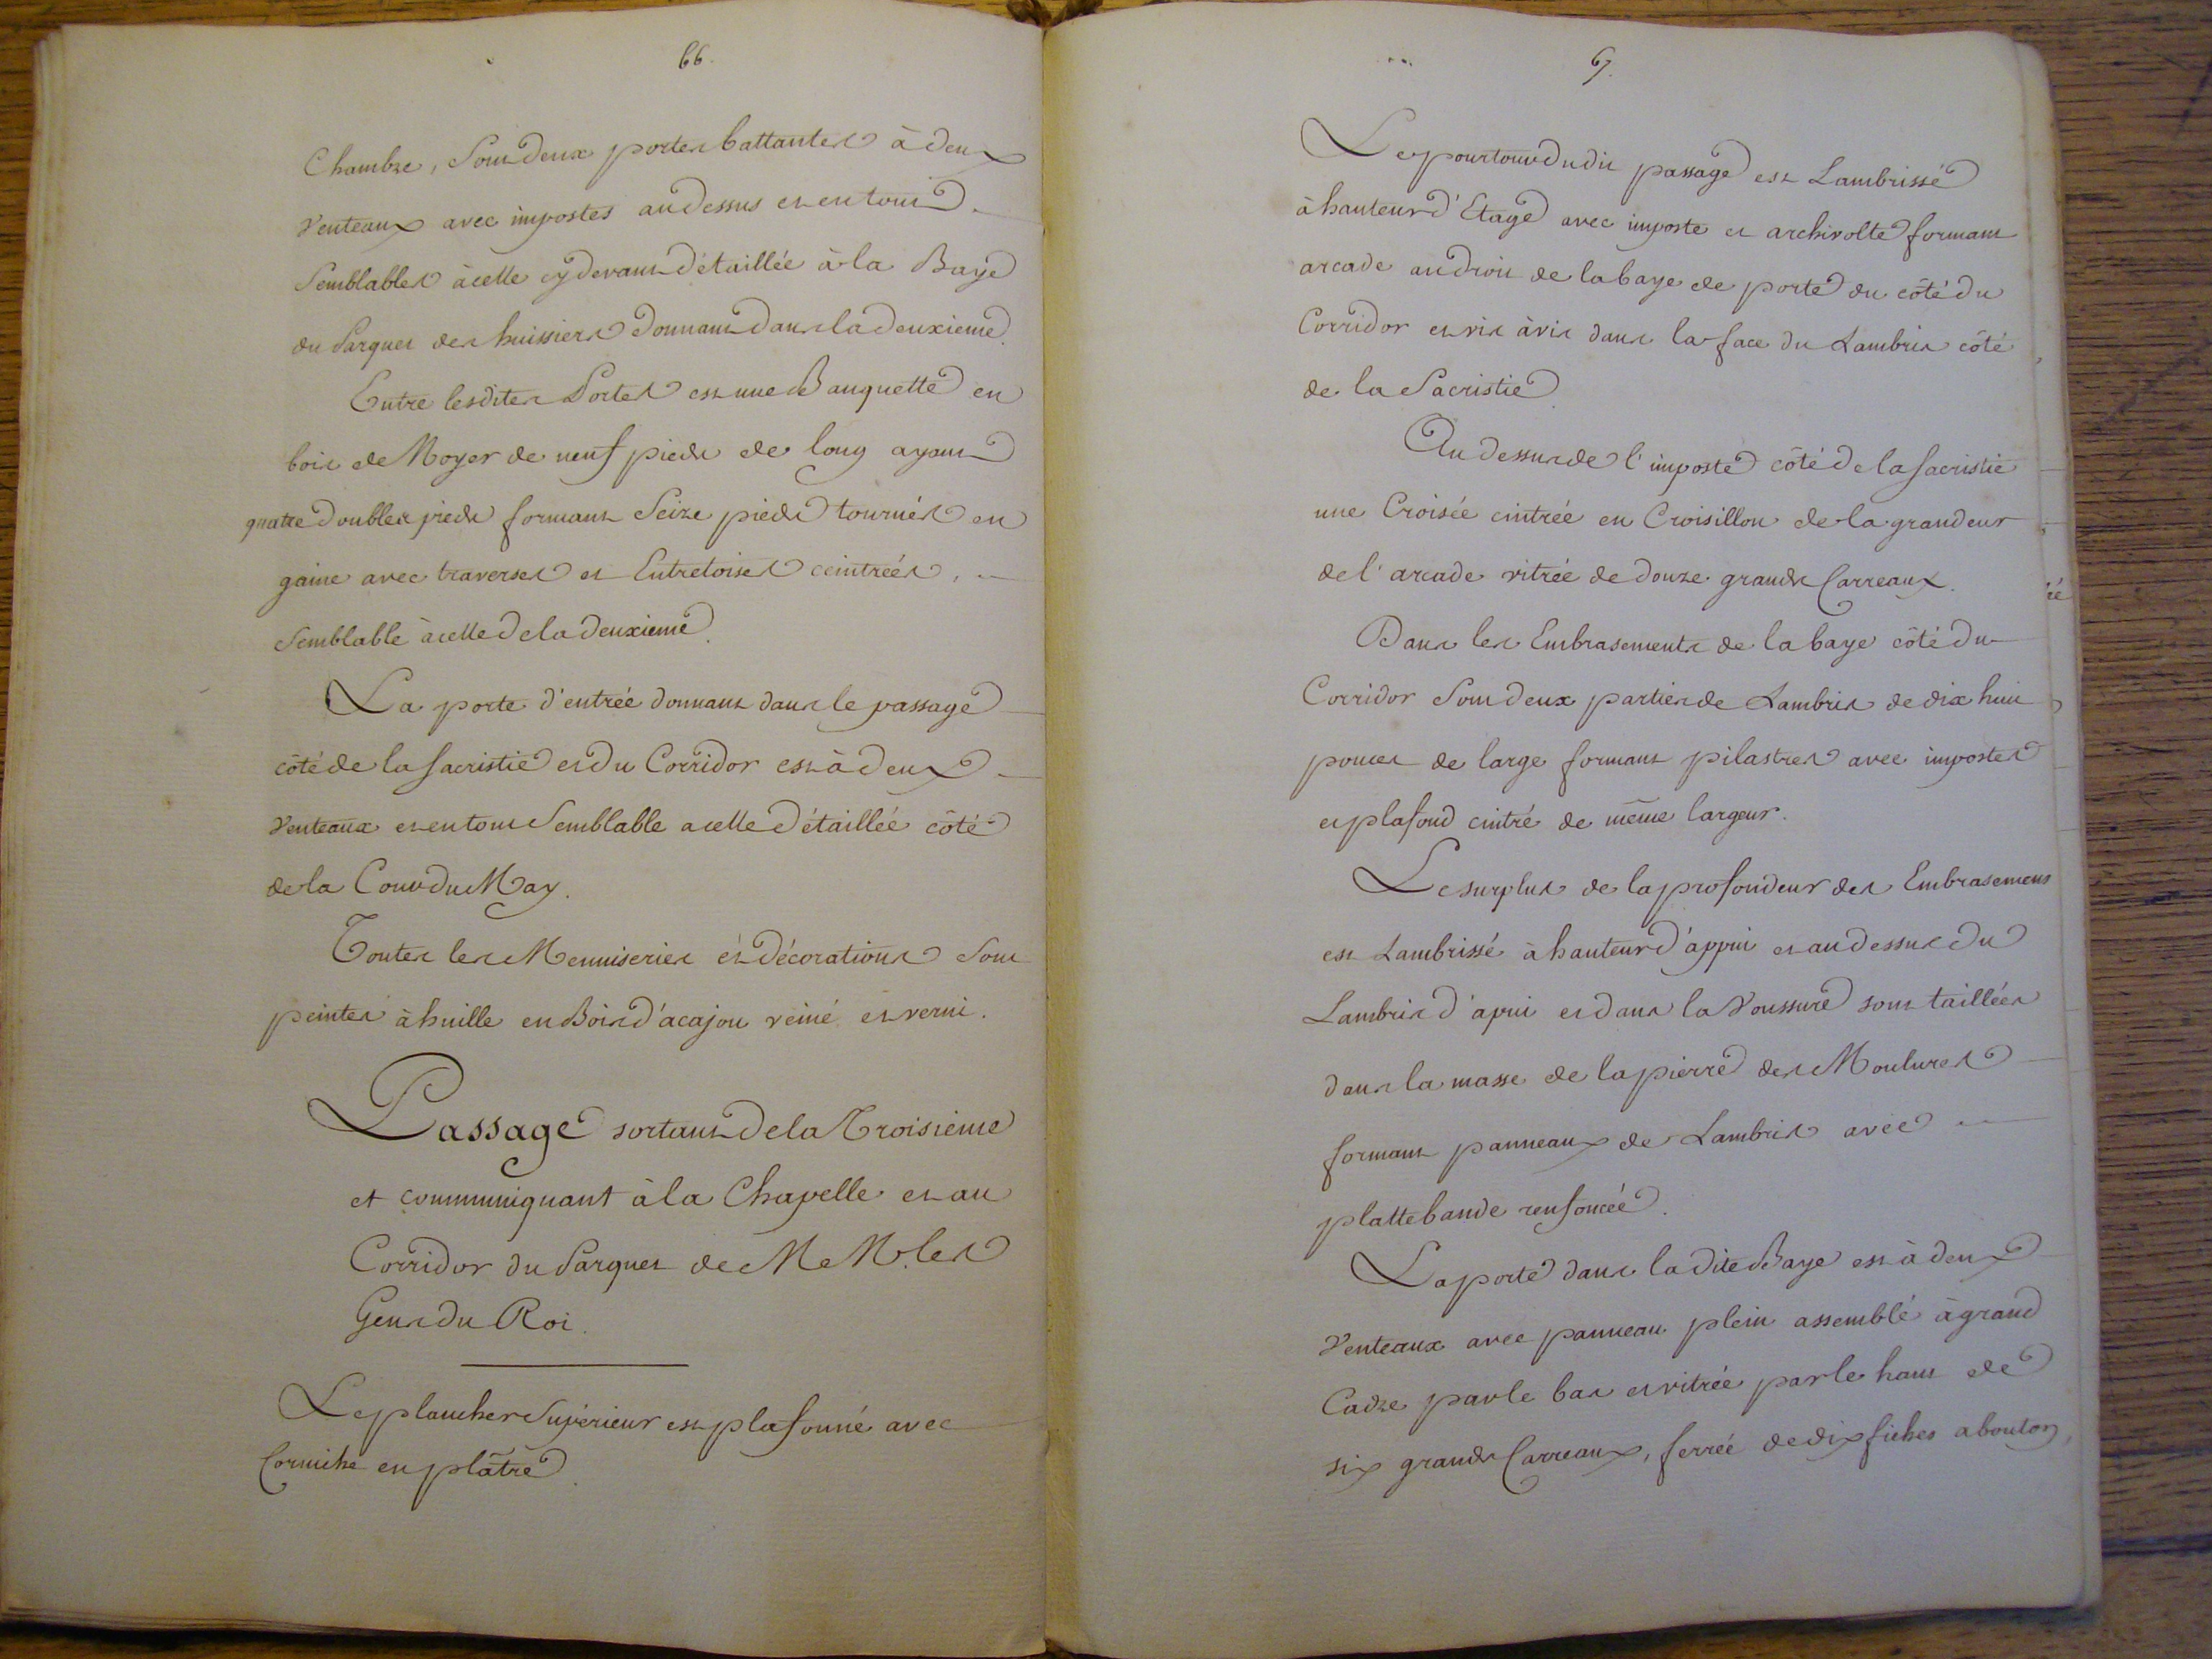 66.
Chambre, Sont deux portes battantes à deux
Venteaux avec impostes au dessus et en tout
Semblables à celle cy devant détaillée à la Baye
du Parquet des huissiers donnant dans la deuxieme.
Entre lesdites Portes est une Banquette en
bois de Noyer de neuf pieds de long ayant
quatre doubles pieds formant Seize pieds tournés en
gaine avec traverses et Entretoises ceintrées,
Semblable à celle de la deuxieme.
La porte d'entrée donnant dans le passage
côté de la Sacristie et du Corridor est à deux
Venteaux et en tout Semblable a celle détaillée côté
de la Cour du May.
Toutes les Menuiseries et décorations Sont
peintes à huille en Bois d'acajou veiné et verni.
Passage sortant de la Troisieme
et communiquant à la Chapelle et au
Corridor du Parquet de M M. les
Gens du Roi.
Le plancher Supérieur est plafonné avec
Corniche en plâtre.
67.
Le pourtour du dit passage est Lambrissé
à hauteur d'Etage avec imposte et archivolte formant
arcade au droit de la baye de porte du côté du
Corridor et vis à vis dans la face du Lambris côté
de la Sacristie.
Au dessus de l'imposte côté de la Sacristie
une Croisée cintrée en Croisillon de la grandeur
de l'arcade vitrée de douze grands Carreaux.
Dans les Embrasements de la baye côté du
Corridor Sont deux parties de Lambris de dix huit
pouces de large formant pilastres avec impostes
et plafond cintré de même largeur.
Le surplus de la profondeur des Embrasemens
est Lambrissé à hauteur d'appui et au dessus du
Lambris d'apui et dans la Voussure sont taillées
dans la masse de la pierre des Moulures
formant panneaux de Lambris avec
plattebande renfoncée.
La porte dans la dite Baye est à deux
Venteaux avec panneau plein assemblé à grand
Cadre par le bas et vitrée par le haut de
six grands Carreaux, ferrée de dix fiches a bouton,